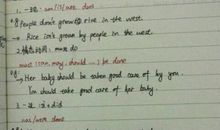 1. 一般 am/is/are done
eg People don't grow rice in the west.
→ Rice isn't grown by people in the west.
2. 情态动词: must do
must (can, may, should...) be done
eg. → Her baby should be taken good care of by you.
You should take good care of her baby.
3. 一过 : did
was/were done